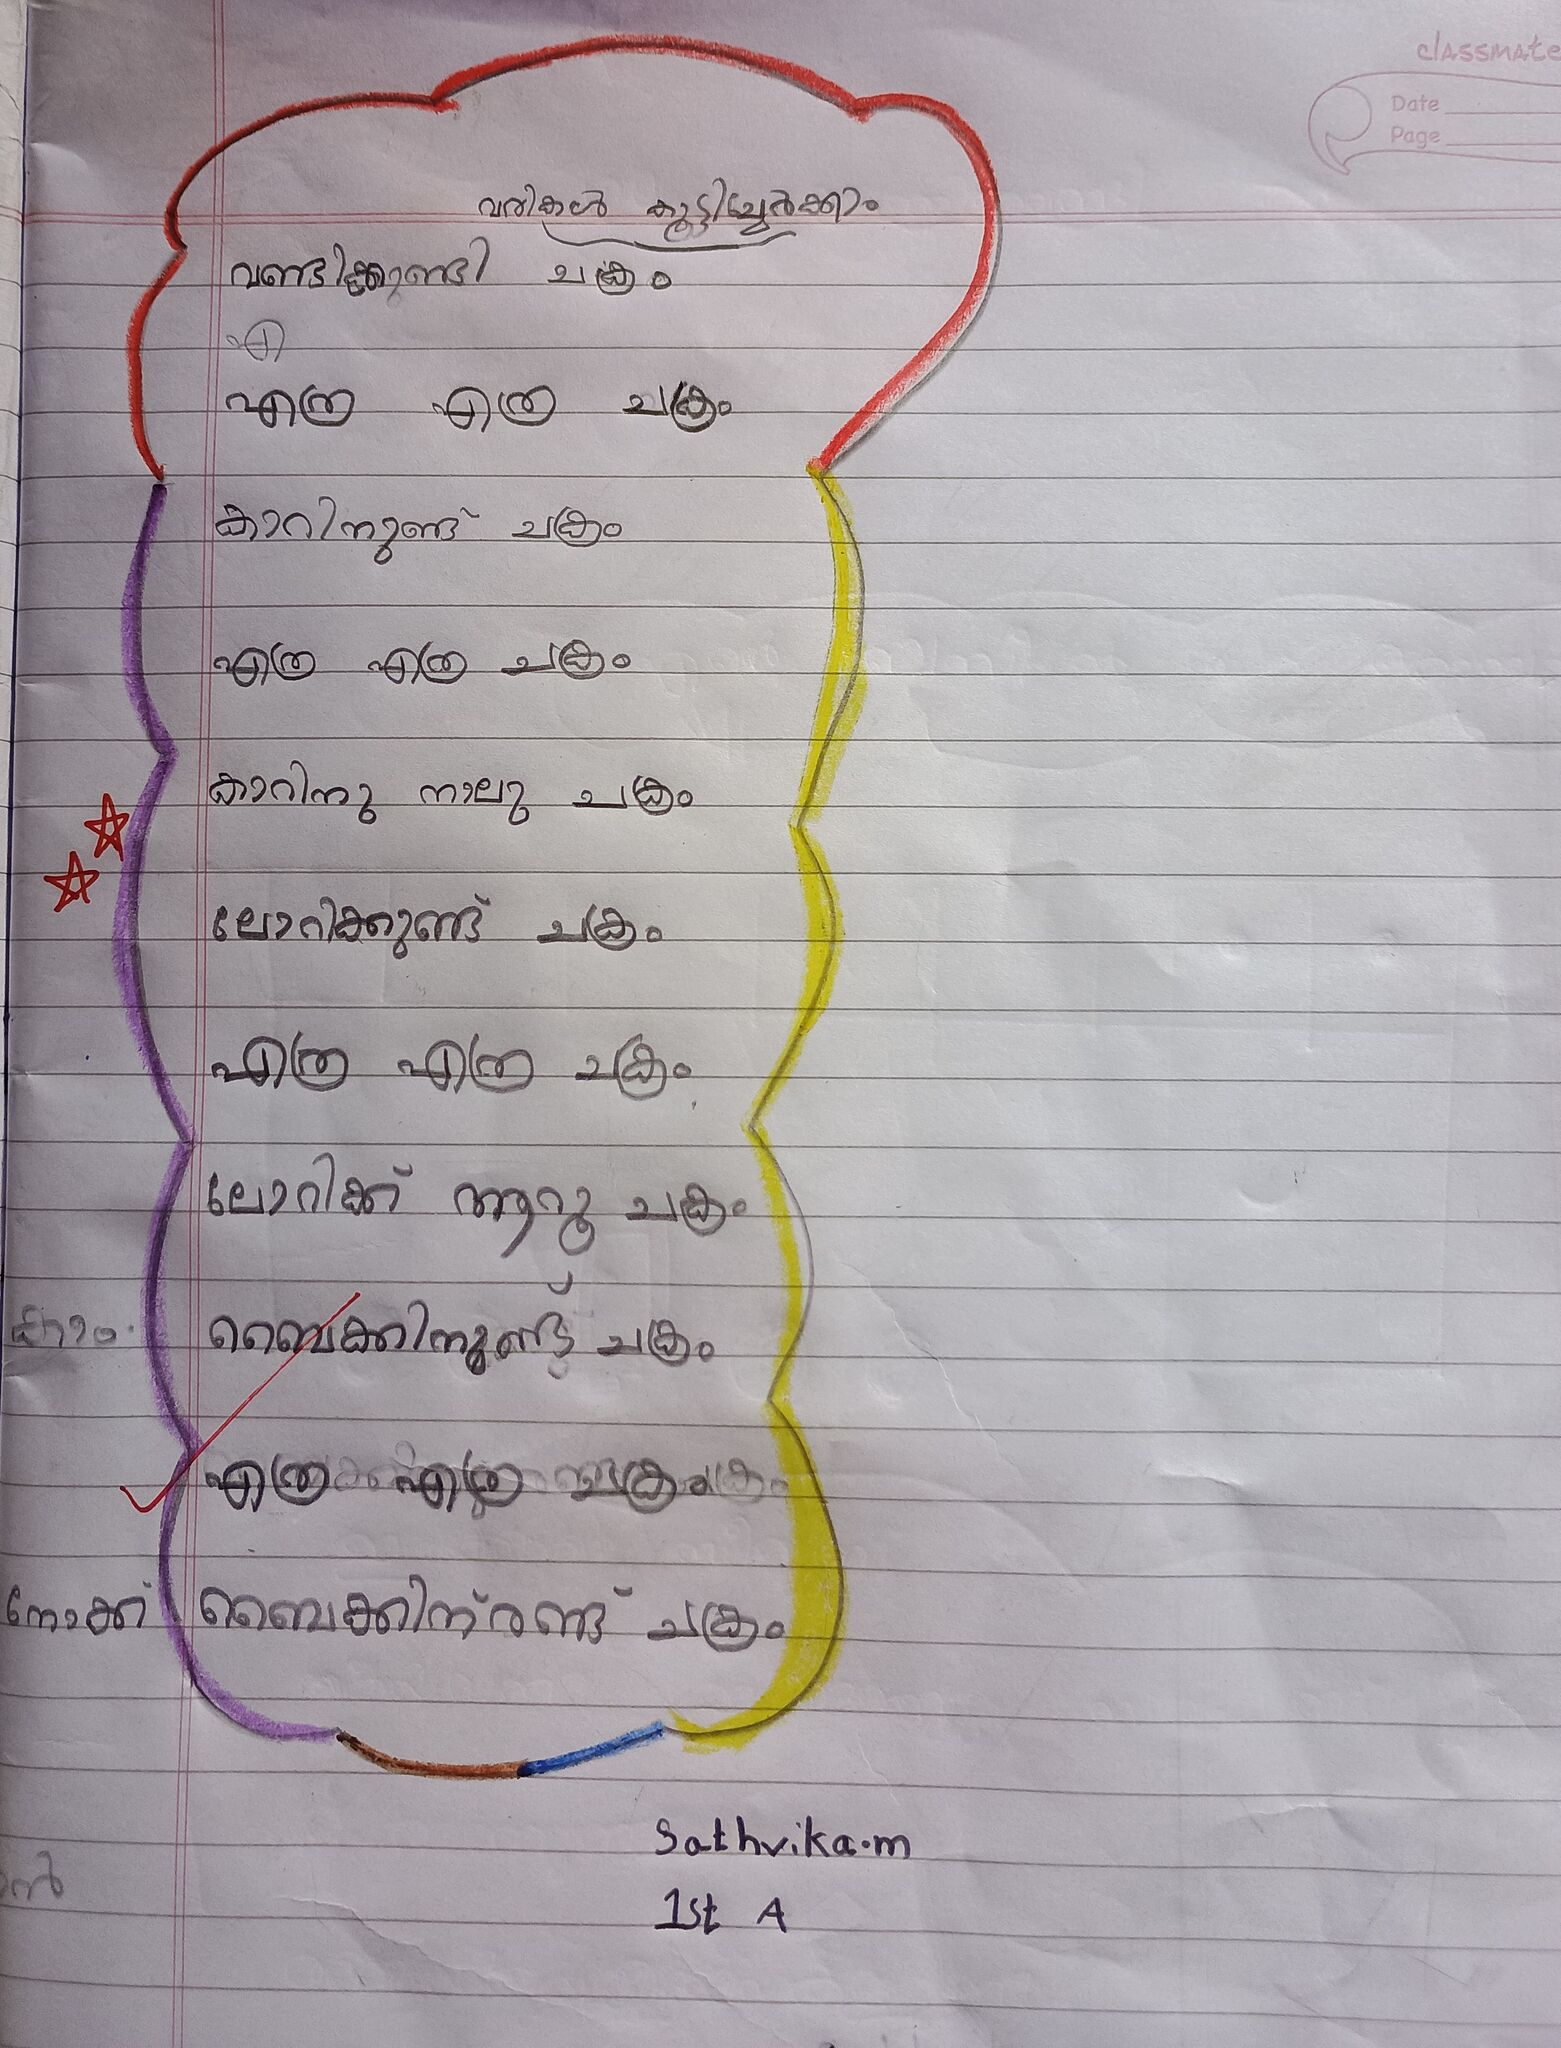 classmate
Date
Page
വരികൾ കൂട്ടിച്ചേർക്കാം
വണ്ടിക്കുണ്ടി ചക്രം
എ
എത്ര എത്ര ചക്രം
കാറിനുണ്ട് ചക്രം
എത്ര എത്ര ചക്രം
കാറിനു നാലു ചക്രം
ലോറിക്കുണ്ട് ചക്രം
എത്ര എത്ര ചക്രം
ലോറിക്ക് ആറു ചക്രം
ബൈക്കിനുണ്ട് ചക്രം
എത്ര എത്ര ചക്രം
ബൈക്കിന് രണ്ട് ചക്രം
Sathvika.m
1st A